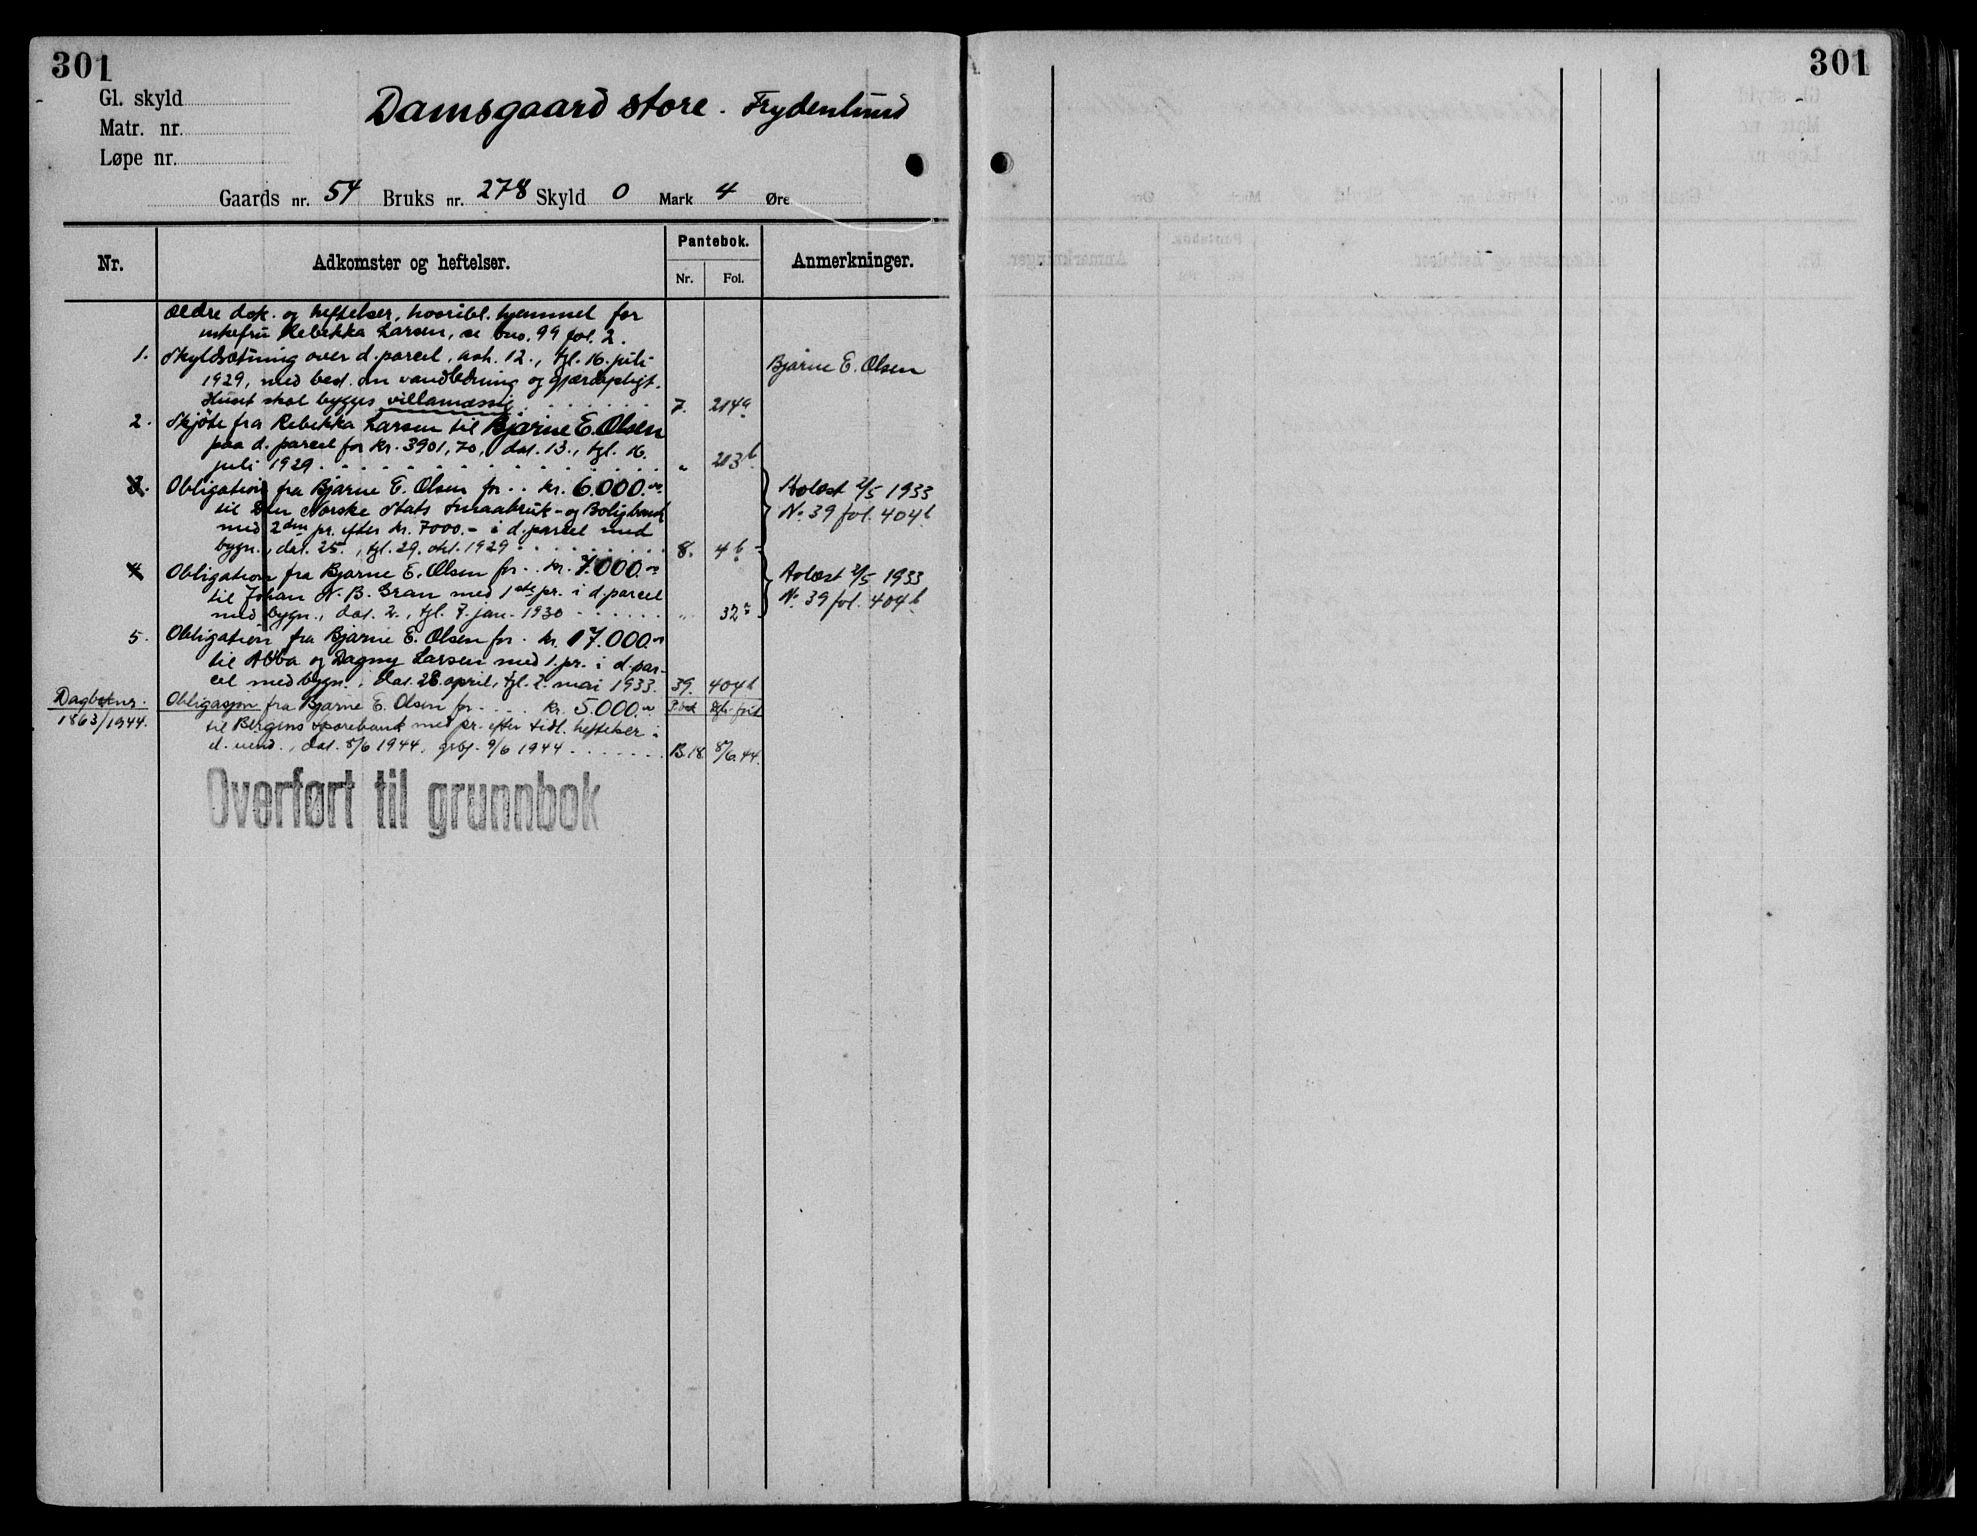 301
301
Gl. skyld
Matr. nr.
Løpe nr.
Damsgaard store. Frydenlund
Gaards nr. 54 Bruks nr. 278 Skyld 0 Mark 4 Øre
Nr. Adkomster og heftelser. Pantebok. Anmerkninger.
Nr. Fol.
Ældre dok. og heftelser, hvoribl. hjemmel for
enkefru Rebekka Larsen, se bno. 99 fol. 2.
1. Skyldsætning over d. parcel, avh. 12., tgl. 16. juli
1929, med best. om vandledning og gjærdepligt.
Huset skal bygges villamæssig 7. 214a
Bjarne E. Olsen
2. Skjøte fra Rebekka Larsen til Bjarne E. Olsen
paa d. parcel for kr. 3901,70, dat. 13., tgl. 16.
juli 1929 " 213b
3. Obligation fra Bjarne E. Olsen for kr. 6.000.
til Den Norske Stats Smaabruk- og Boligbank
med 2den pr. efter kr. 7000.- i d. parcel med
bygn., dat. 25., tgl. 29. okt. 1929 8. 4b
Avlæst 2/5 1933
Nr. 39 fol. 404b
4. Obligation fra Bjarne E. Olsen for kr. 7.000.
til Johan N. B. Gran med 1ste pr. i d. parcel
med bygn., dat. 2., tgl. 7. jan. 1930 " 32a
Avlæst 2/5 1933
Nr. 39 fol. 404b
5. Obligation fra Bjarne E. Olsen for kr. 17.000.
til Abba og Dagny Larsen med 1. pr. i d. par-
cel med bygn., dat. 28. april, tgl. 2. mai 1933. 39. 404b
Dagboknr.
1863/1944.
Obligasjon fra Bjarne E. Olsen for kr. 5.000.
til Bergens Sparebank med pr. efter tidl. heftelser i
d. eiend., dat. 5/6 1944, grbf. 9/6 1944 B.18 8/6.44.
Overført til grunnbok